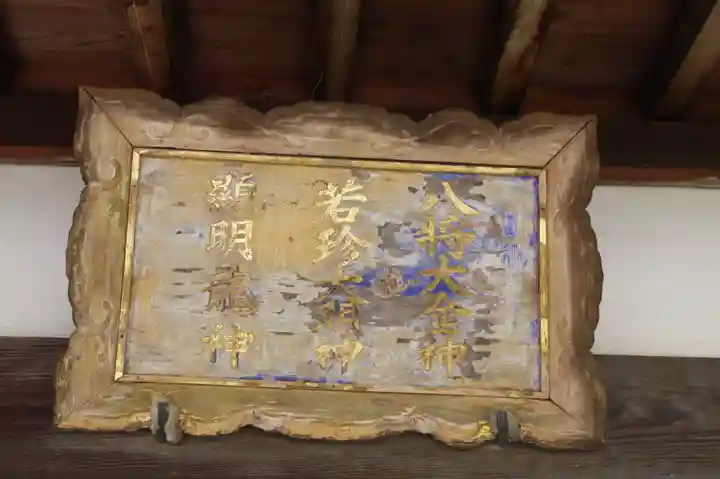 八将大金神
若珍大明神
顕明龍神